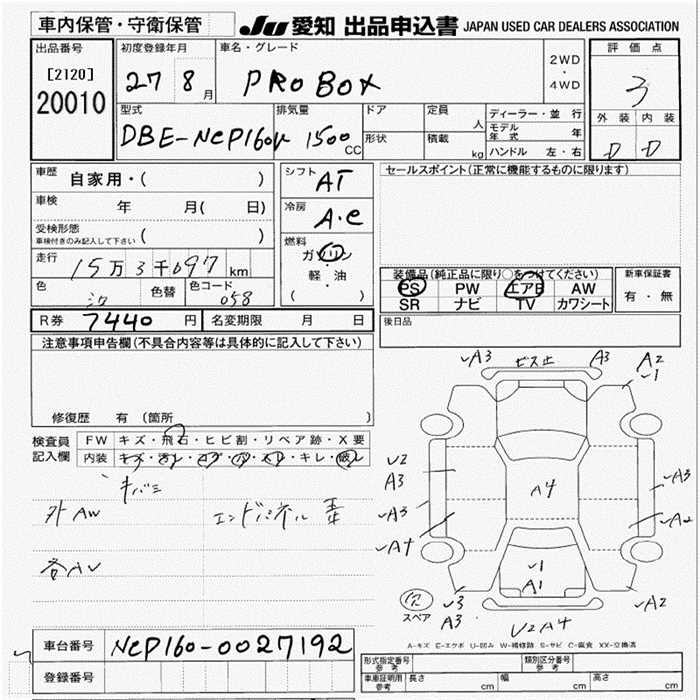 車内保管・守衛保管
JU 愛知 出品申込書 JAPAN USED CAR DEALERS ASSOCIATION
出品番号
[2120]
20010
初度登録年月
27 8月
車名・グレード
PROBOX
2WD
・
4WD
評価点
3
外装 内装
D D
型式
DBE-NCP160V
排気量
1500 CC
ドア
形状
定員
人
積載
kg
ディーラー・並行
モデル年式 年
ハンドル 左・右
車歴 自家用・( )
車検 年 月( 日)
受検形態
車検付きのみ記入して下さい ( )
走行 15万3千697km
色 色替 色コード 058
シフト AT
冷房 A・C
燃料
ガソリン
・
軽・油
( )
セールスポイント(正常に機能するものに限ります)
装備品(純正品に限り○をつけてください)
PS PW エアB AW
SR ナビ TV カワシート
新車保証書
有・無
R券 7440円 名変期限 月 日
後日品
注意事項申告欄(不具合内容等は具体的に記入して下さい)
修復歴 有 (箇所 )
検査員記入欄
FW キズ・飛石・ヒビ割・リペア跡・X要
内装 キズ・汚レ・コゲ・穴・スレ・キレ・破レ
キバミ
外AW エンドパネル
各AU
A3 ビス止 A3 A2
1
U2
A3 A3
A3
A4
A4 A2
1
A1
スペア
3
A3
U2 A4
A2
A-キズ E-エクボ U-凹み W-補修跡 S-サビ C-腐食 XX-交換済
車台番号 NCP160-0027192
登録番号
形式指定番号
参考
類別区分番号
参考
車庫証明用
参考
長さ cm 幅 cm 高さ cm